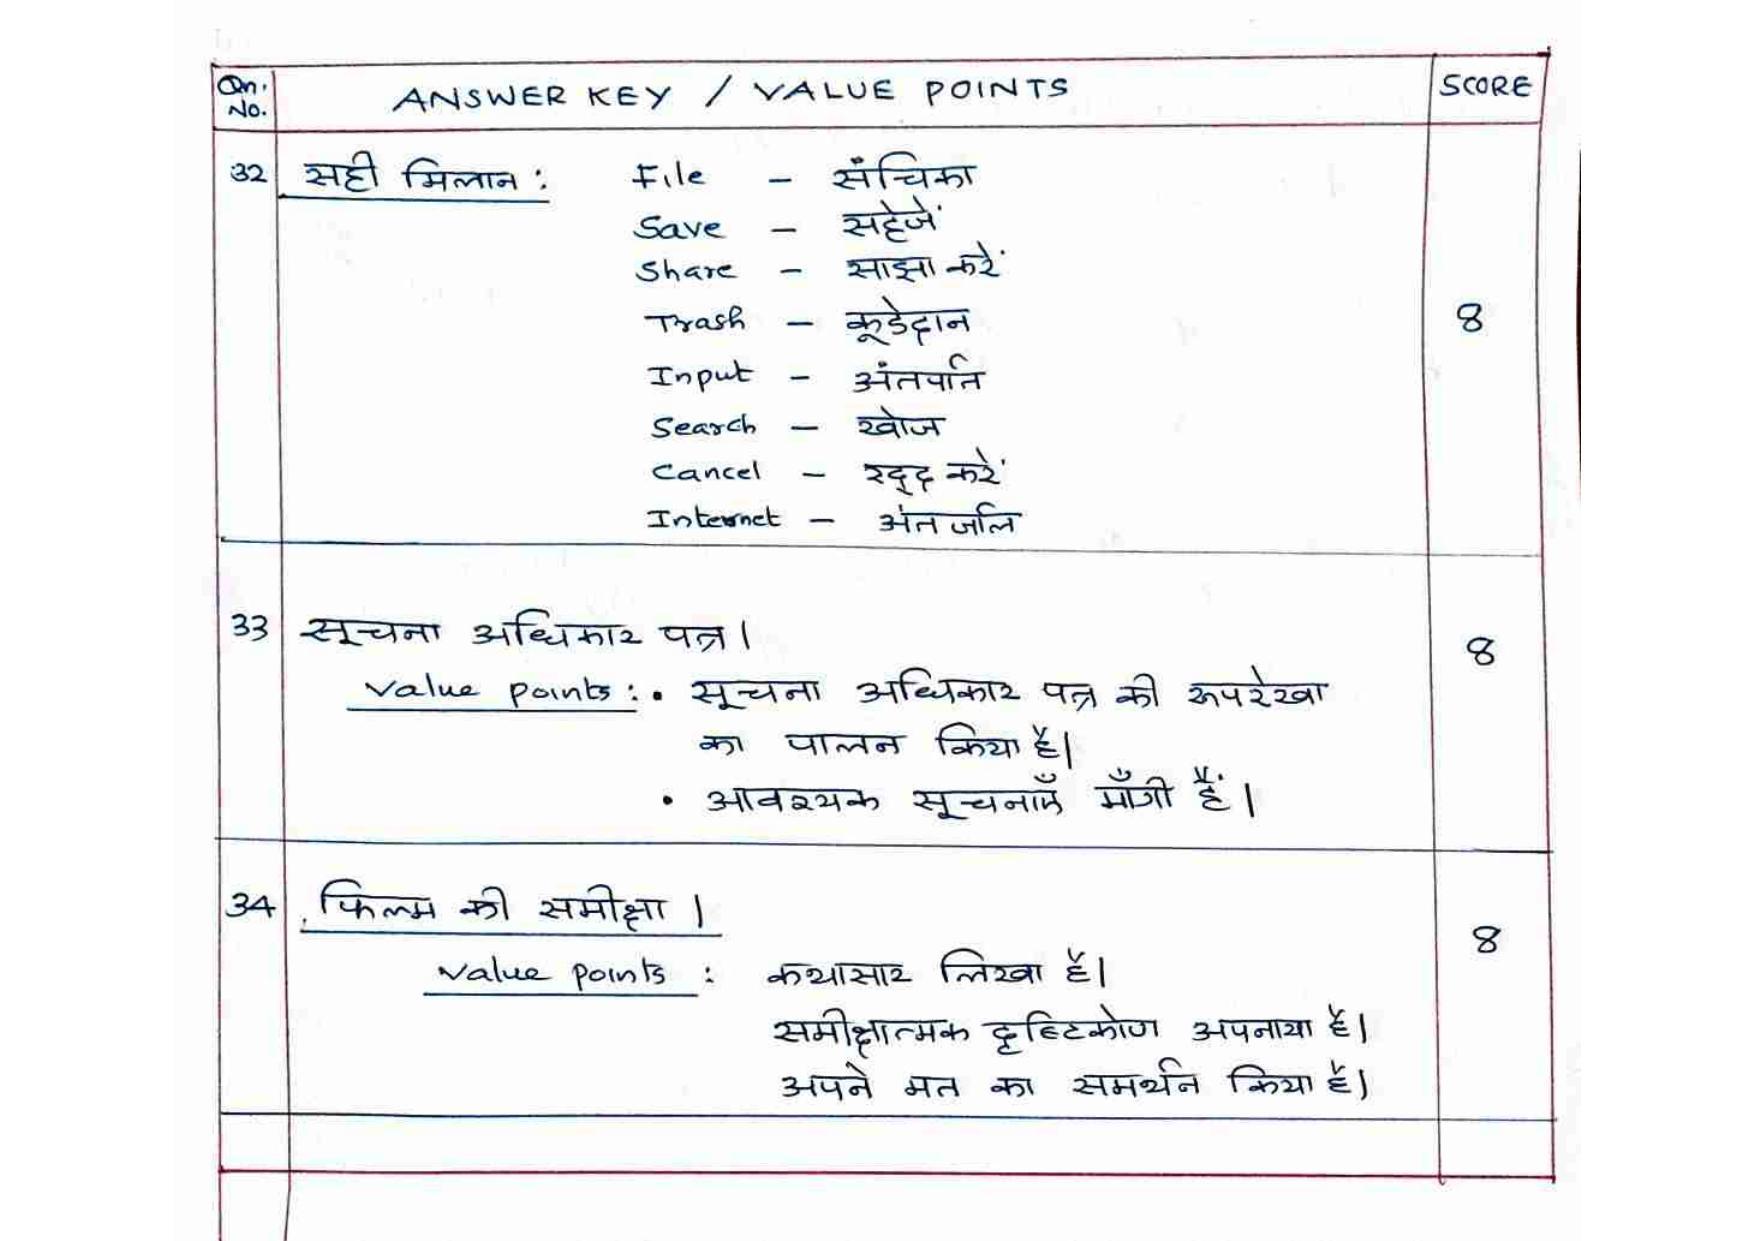 Qn. No. ANSWER KEY / VALUE POINTS SCORE
32 सही मिलान : File - संचिका
Save - सहेजें
Share - साझा करें
Trash - कूडेदान 8
Input - अंतर्पात
Search - खोज
Cancel - रद्द करें
Internet - अंतर्जाल
33 सूचना अधिकार पत्र। 8
Value points : • सूचना अधिकार पत्र की रूपरेखा
का पालन किया है।
• आवश्यक सूचनाएँ माँगी हैं।
34 फिल्म की समीक्षा। 8
Value points : कथासार लिखा है।
समीक्षात्मक दृष्टिकोण अपनाया है।
अपने मत का समर्थन किया है।